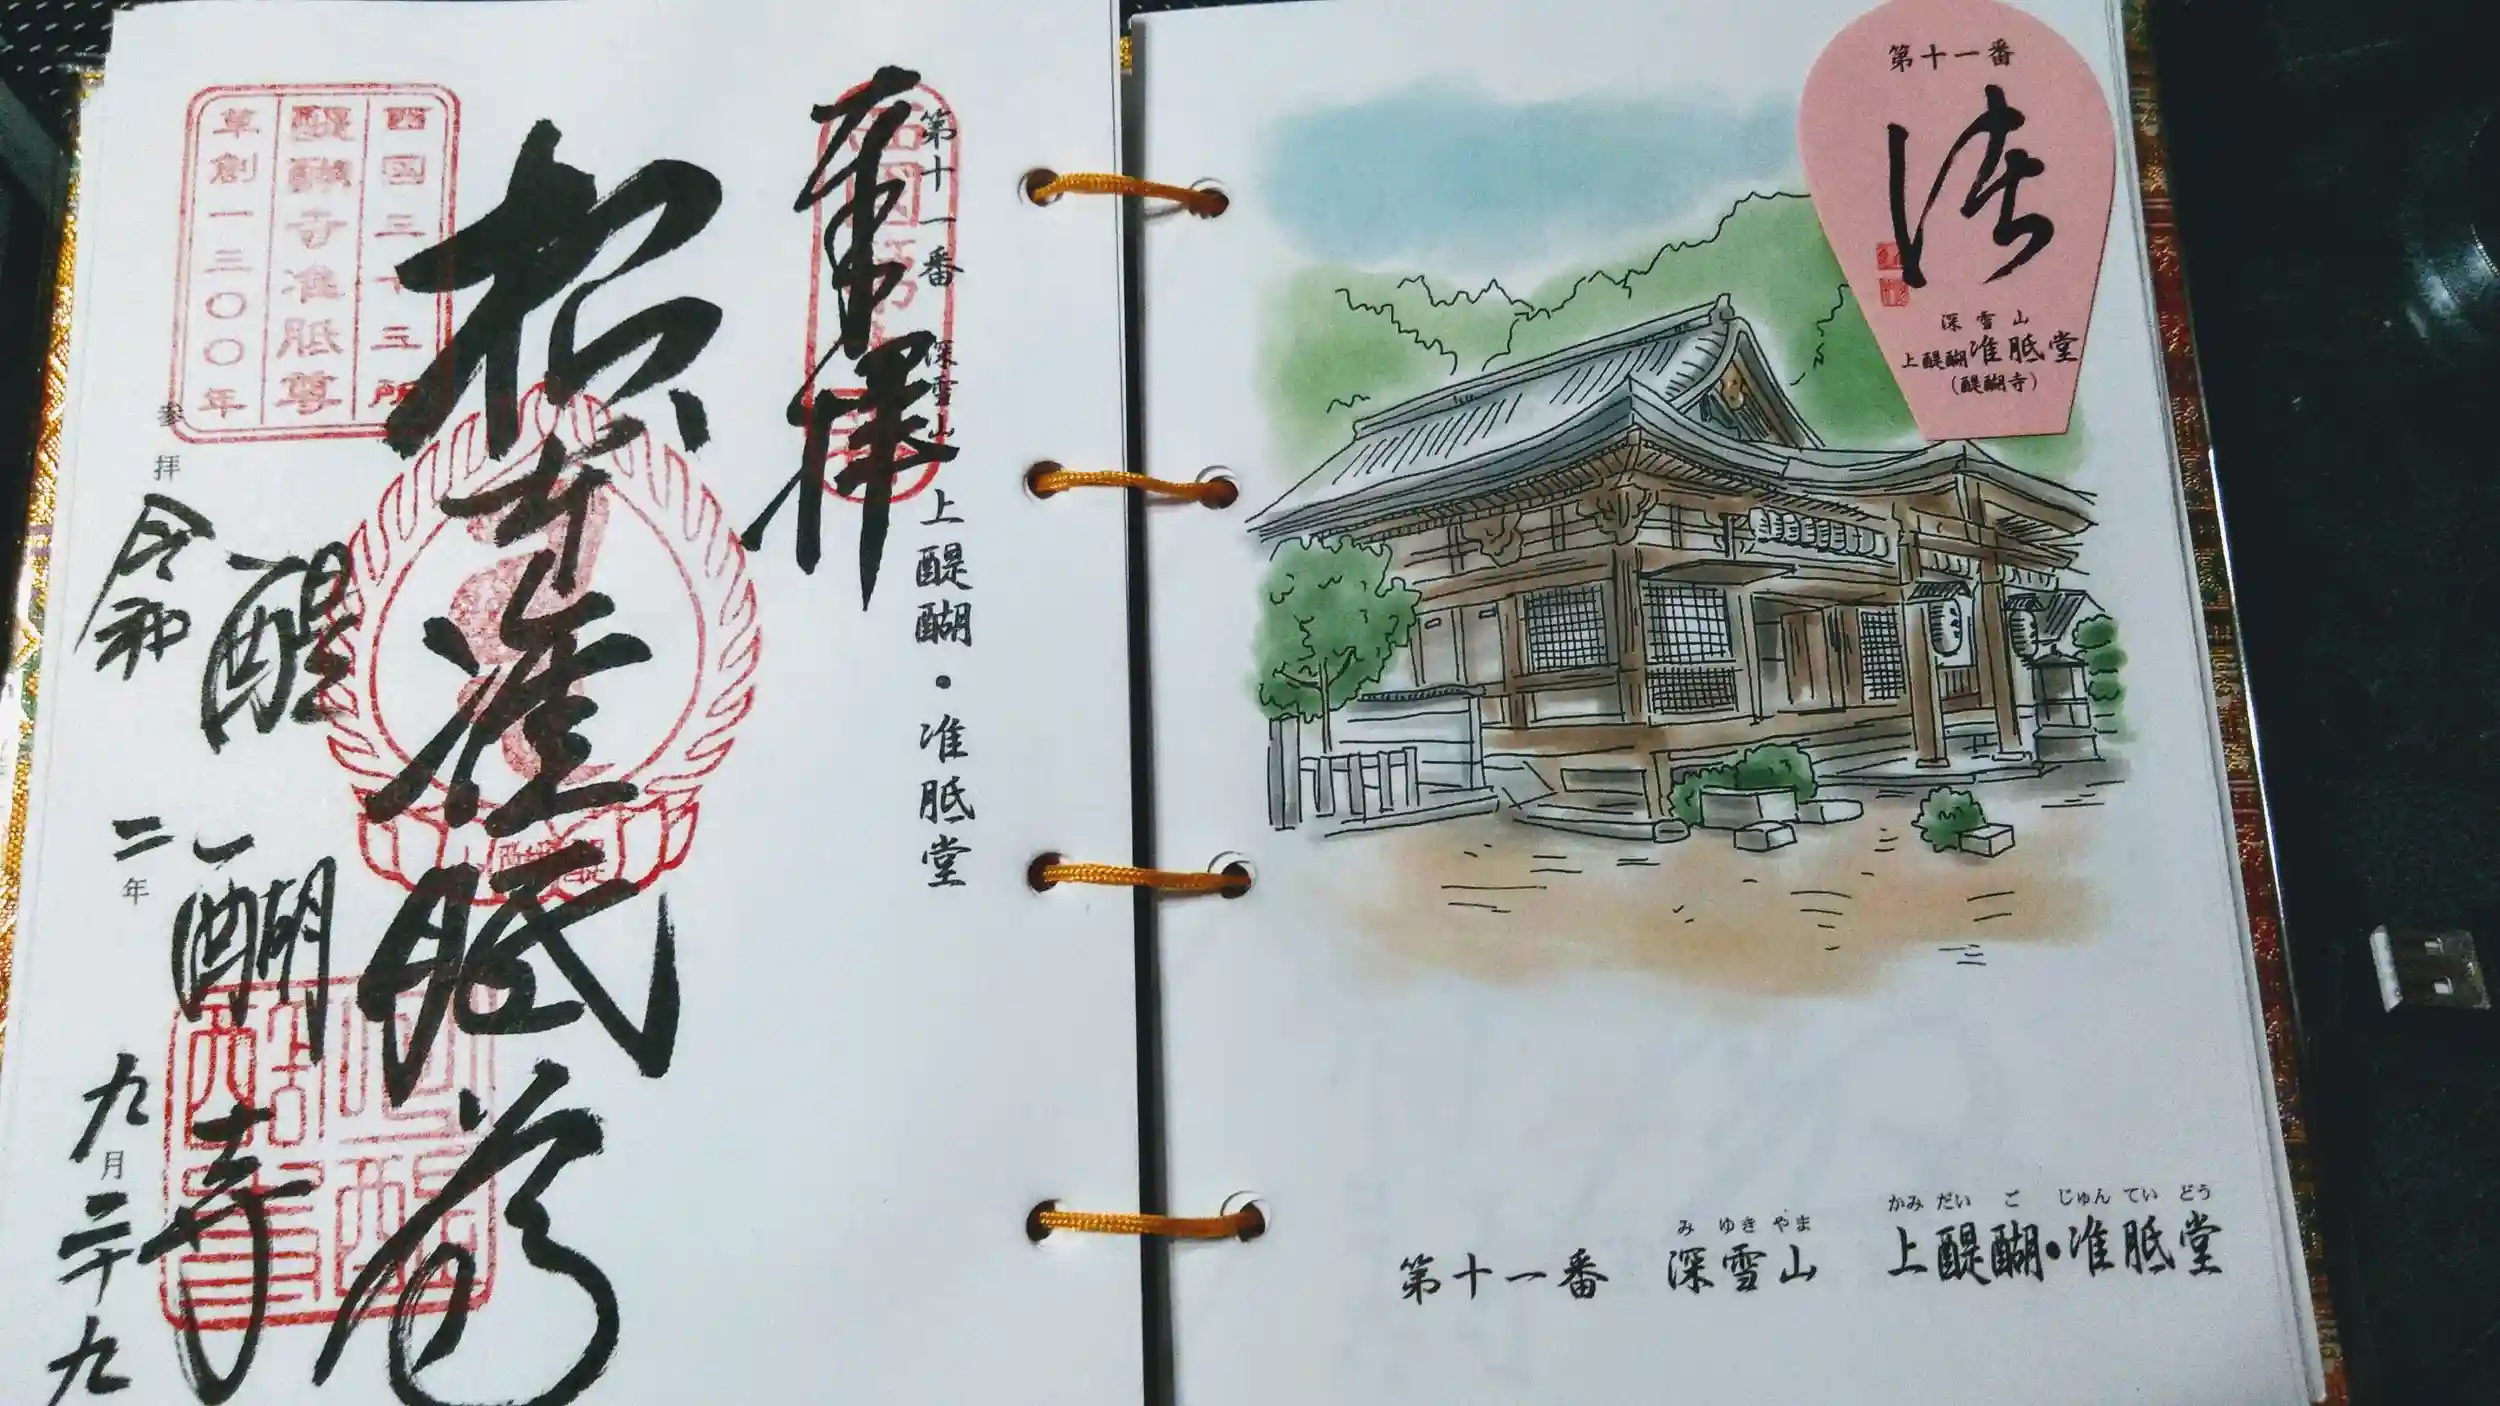 第十一番 深雪山 上醍醐・准胝堂
奉拝
根本准胝尊
西国三十三所
醍醐寺准胝尊
草創一三〇〇年
醍醐寺
参拝 令和二年九月二十九
第十一番
深雪山
上醍醐准胝堂
(醍醐寺)
みゆきやま かみだいごじゅんていどう
第十一番 深雪山 上醍醐・准胝堂